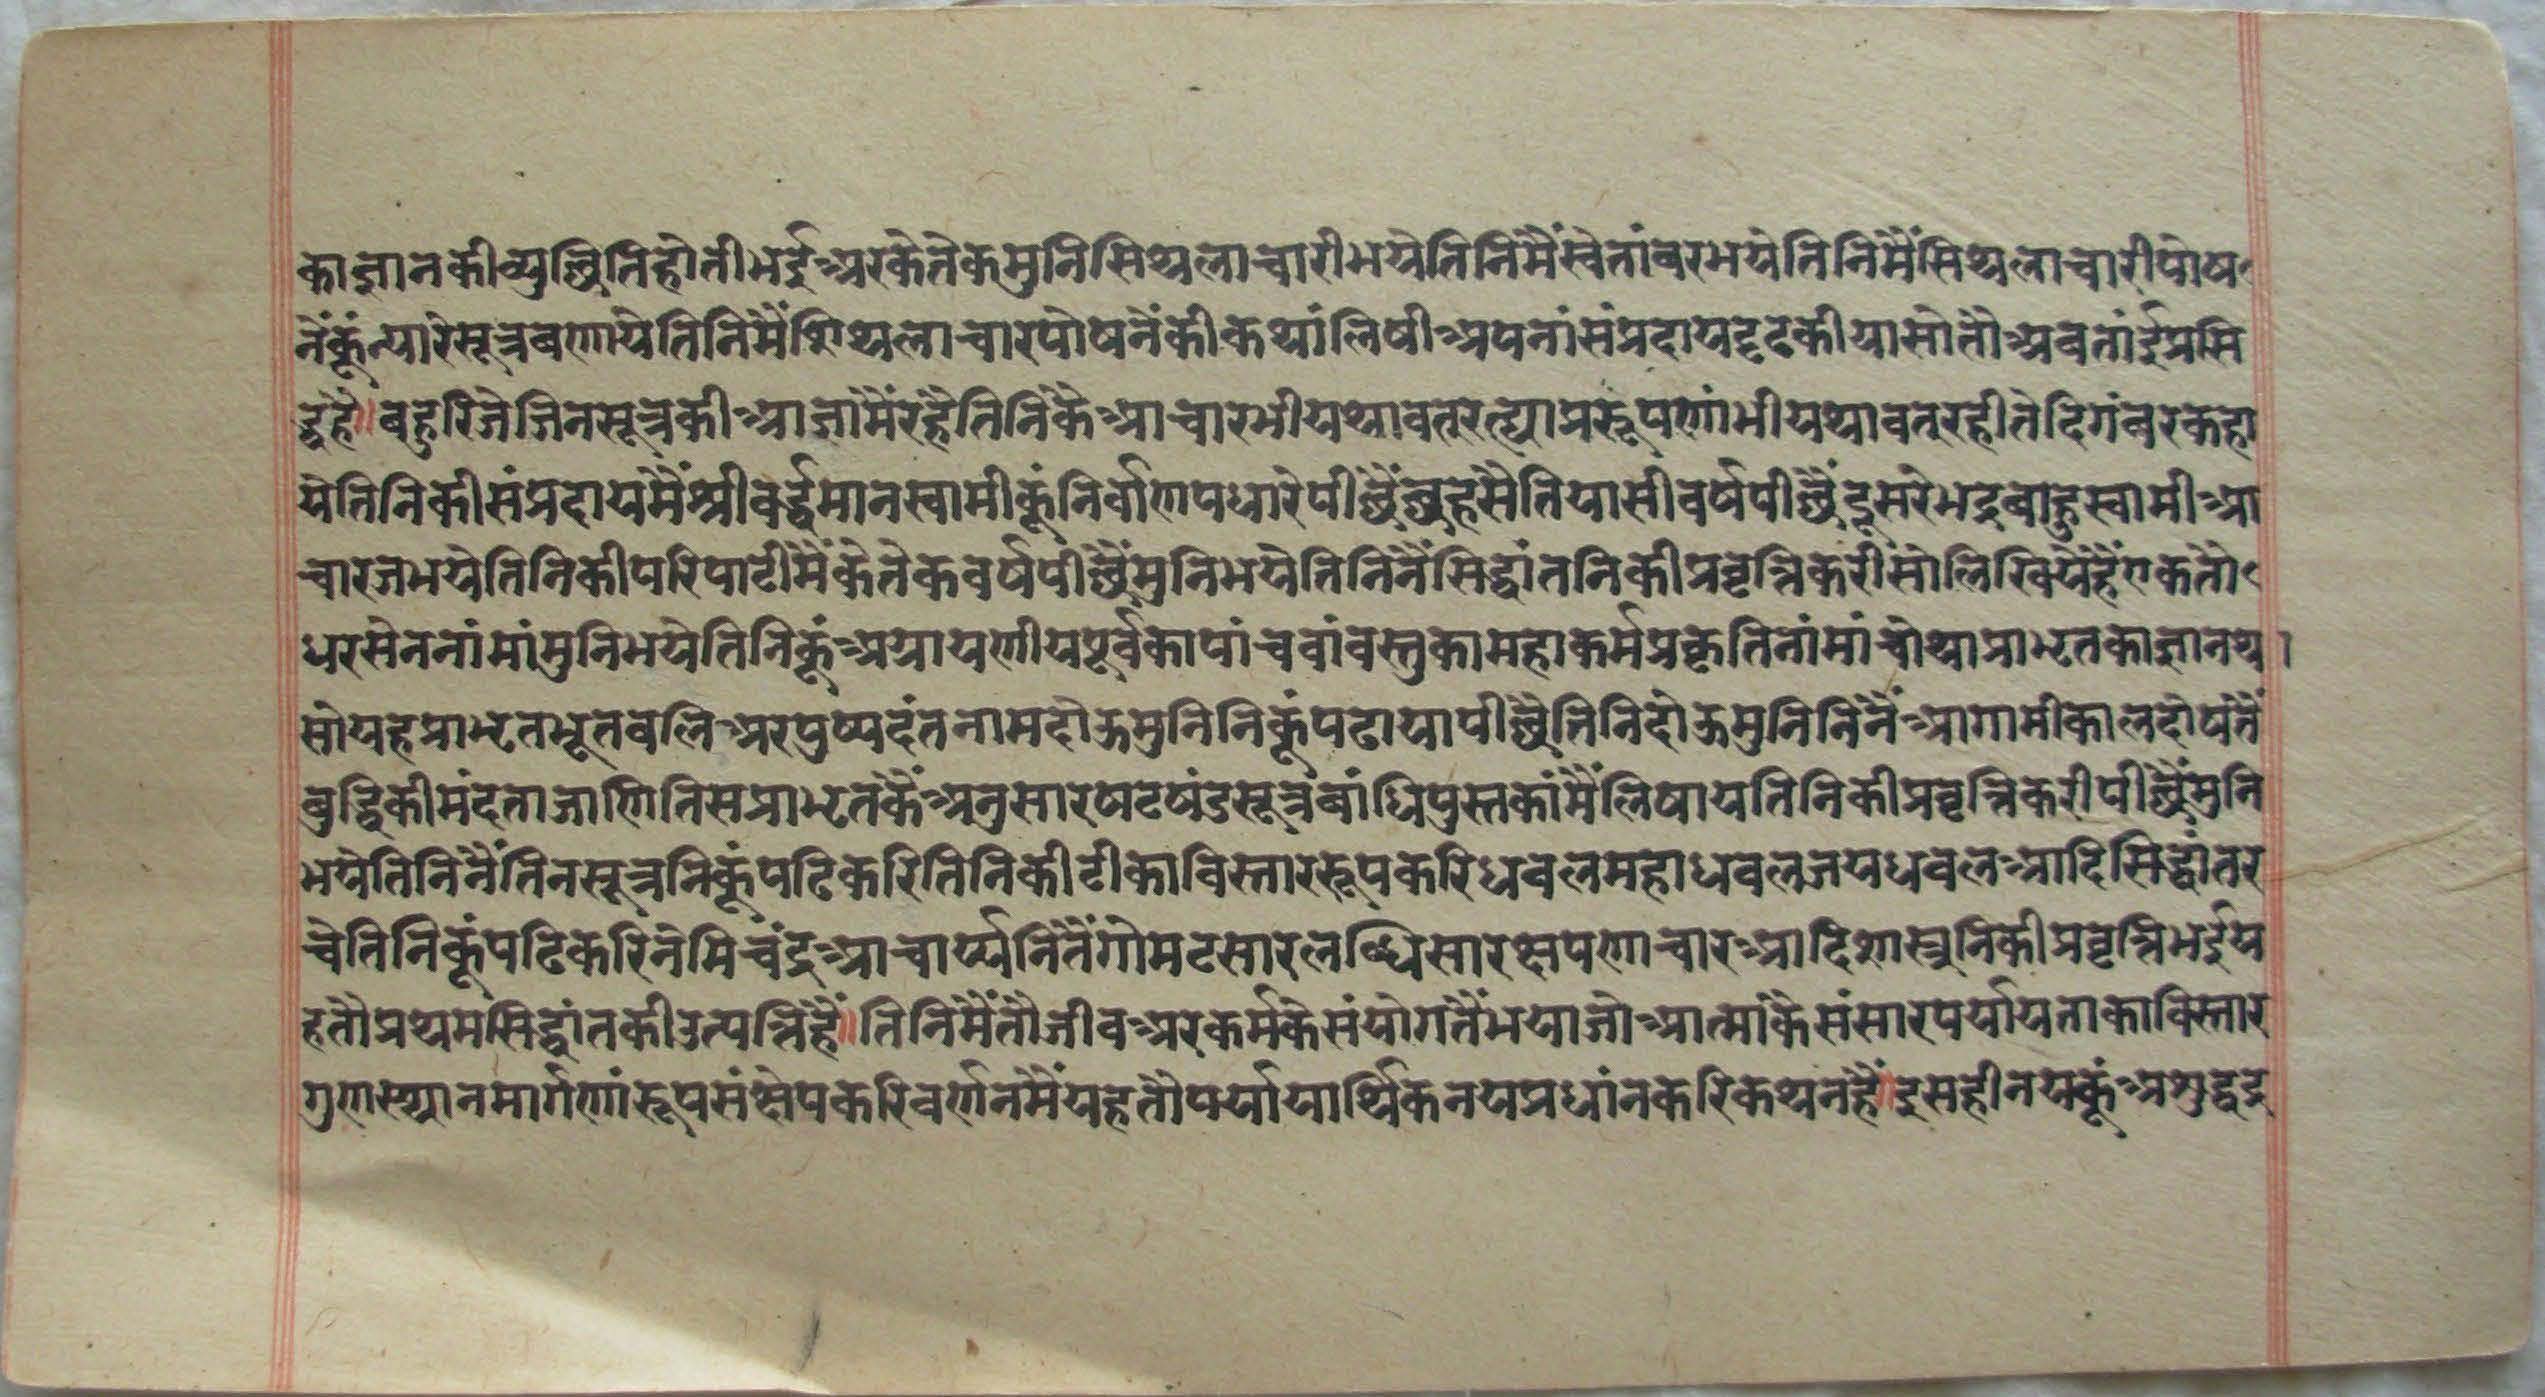 काज्ञानकीव्युछितिहोतीभईअरकेतेकमुनिसिथलाचारीभयेतिनिमैंस्वेतांबरभयेतिनिमैंसिथलाचारीपोष
नेंकूंन्यारेसूत्रबणायेतिनिमैंशिथलाचारपोषनेंकीकथांलिषीअपनांसंप्रदायदृढकीयासोतौअबतांईप्रसि
द्धहै॥बहुरिजेजिनसूत्रकीआज्ञामैंरहैतिनिकैआचारभीयथावतुरत्द्याप्ररूपणांभीयथावतुरहीतेदिगंबरकहा
येतिनिकीसंप्रदायमैंश्रीवर्द्धमानस्वामीकूंनिर्वाणपधारेपीछैंछहसैतियासीवर्षपीछैंदूसरेभद्रबाहुस्वामीआ
चारजभयेतिनिकीपरिपाटीमैंकेतेकवर्षपीछैंमुनिभयेतिनिनैंसिद्धांतनिकीप्रवृत्तिकरीसोलिखियेंहैंएकतौ
धरसेननांमांमुनिभयेतिनिकूंअग्रायणीयपूर्वकापांचवांवस्तुकामहाकर्मप्रकृतिनांमांचौथाप्राभृतकाज्ञानथा
सोयहप्राभृतभूतबलिअरपुष्पदंतनामदोऊमुनिनिकूंपढायापीछैतिनिदोऊमुनिनिनैंआगामीकालदोषतैं
बुद्धिकीमंदताजाणितिसप्राभृतकैंअनुसारषटषंडसूत्रबांधिपुस्तकांमैंलिषायतिनिकीप्रवृत्तिकरीपीछैंमुनि
भयेतिनिनैंतिनसूत्रनिकूंपढिकरितिनिकीटीकाविस्ताररूपकरिधवलमहाधवलजयधवलआदिसिद्धांतर
चेतिनिकूंपढिकरिनेमिचंद्रआचार्य्यनितैंगोमटसारलब्धिसारक्षपणाचारआदिशास्त्रनिकीप्रवृत्तिभईय
हतौप्रथमसिद्धांतकीउत्पत्तिहैं॥तिनिमैंतौजीवअरकर्मकेसंयोगतैंभयाजोआत्मांकैसंसारपर्यायताकाविस्तार
गुणस्थानमार्गणांरूपसंक्षेपकरिवर्णनमैंयहतौपर्यायार्थिकनयप्रधांनकरिकथनहैं॥इसहीनयकूंअशुद्धद्र